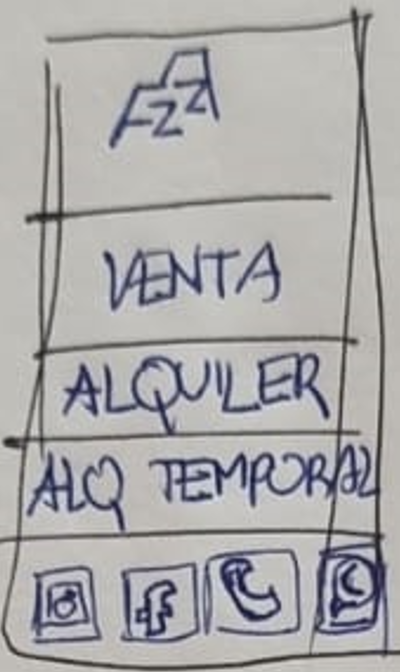 VENTA
ALQUILER
ALQ TEMPORAL